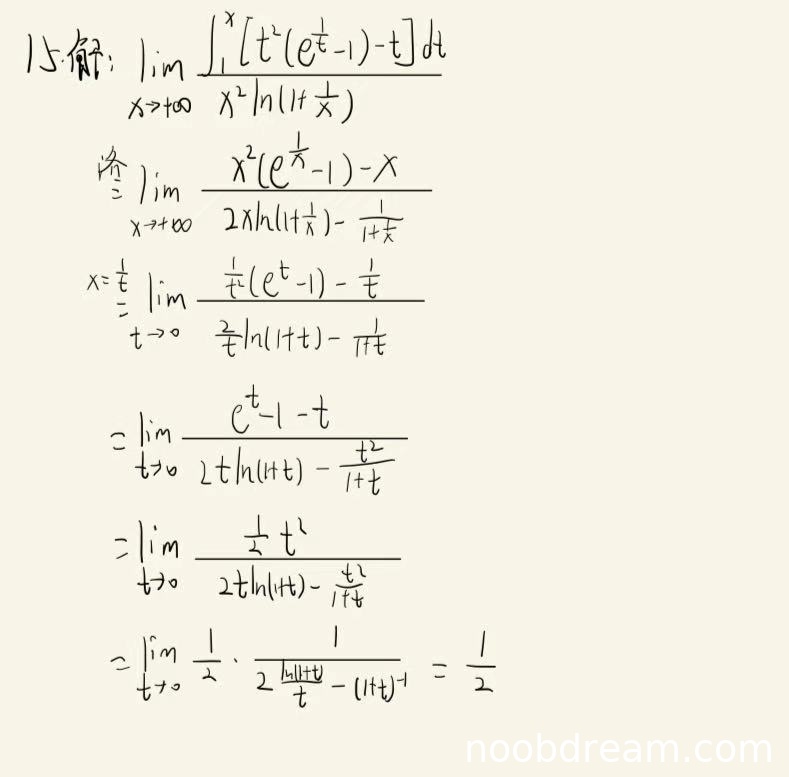 15.解: lim_{x→+∞} ∫_1^x [t²(e^{1/t}-1)-t]dt / x²ln(1+1/x)
洛= lim_{x→+∞} x²(e^{1/x}-1)-x / 2xln(1+1/x)- 1/(1+1/x)
x=1/t = lim_{t→0} 1/t²(e^t-1) - 1/t / 2/t ln(1+t) - 1/(1+t)
= lim_{t→0} e^t-1-t / 2tln(1+t) - t²/(1+t)
= lim_{t→0} 1/2 t² / 2tln(1+t) - t²/(1+t)
= lim_{t→0} 1/2 · 1 / 2 ln(1+t)/t - (1+t)^{-1} = 1/2
noobdream.com